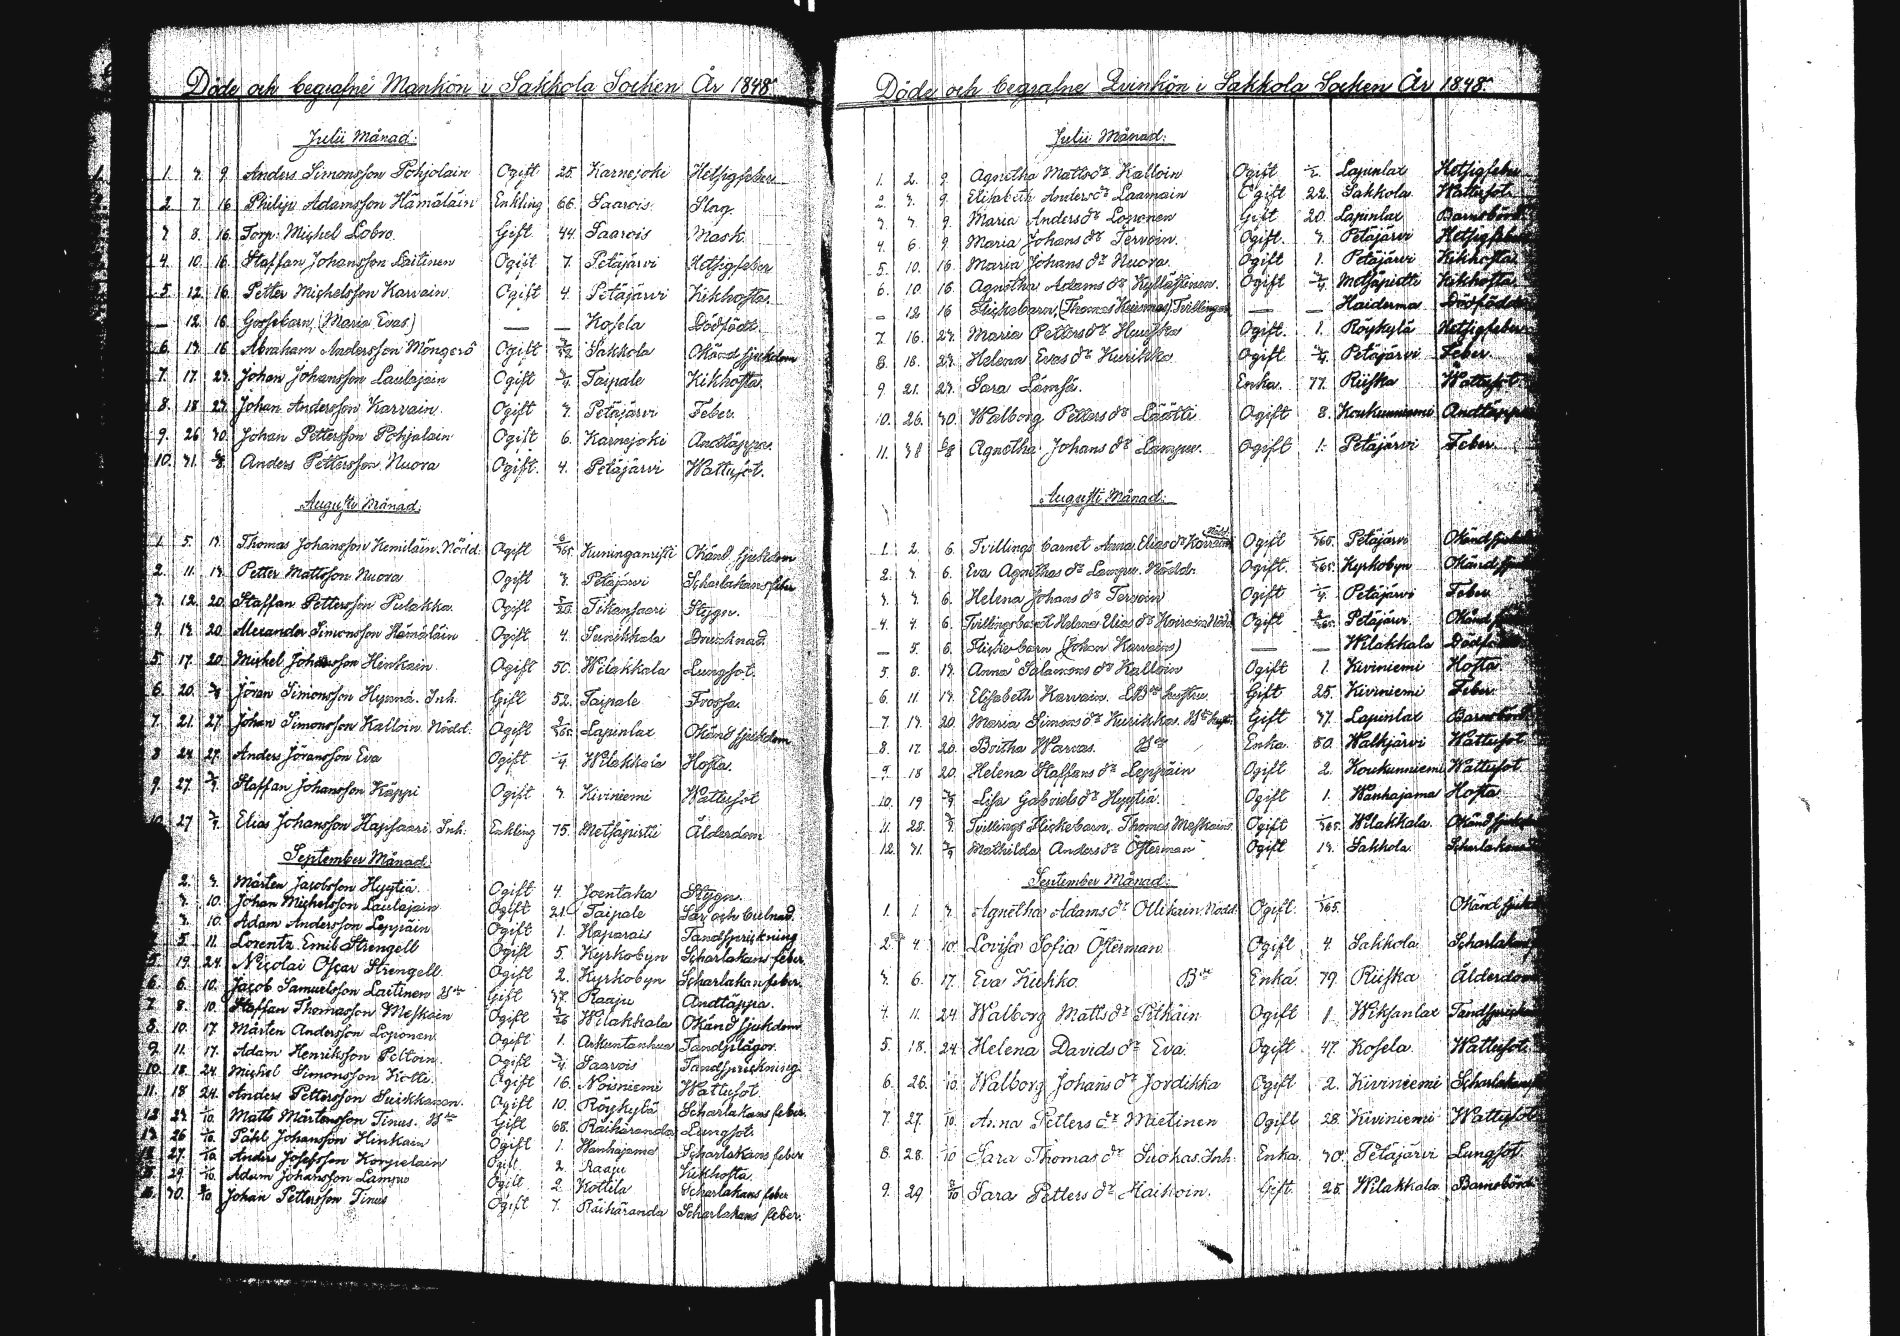 Döde och begrafne Mankön i Sakkola Socken År 1848.
Julii Månad:
1. 3. 9. Anders Simonsson Pohjolain Ogift 25. Karnejoki Hetsigfeber
2. 7. 16 Philip Adamsson Hämäläin Enkling 66. Saarois Slag.
3 8. 16. Torp. Michel Lobro. Gift 44. Saarois Mask
4. 10. 16. Staffan Johansson Laitinen Ogift 7. Petäjärvi Hetsigfeber
5. 12 16 Petter Michelsson Karvain. Ogift 4. Petäjärvi Kikhosta.
— 12. 16. Gossebarn, (Maria Evas) — — Kosela Dödfödt.
6. 13 16 Abraham Andersson Ogift Sakkola Okänd sjukdom
7. 17. 23. Johan Johansson Laulajain Ogift 3/4. Taipale Kikhosta.
8. 18 23. Johan Andersson Karvain. Ogift 3. Petäjärvi Feber.
9. 26 30. Johan Pettersson Pohjolain Ogift 6. Karnejoki Andtäppa.
10. 31. 6/8 Anders Pettersson Nuora Ogift. 4. Petäjärvi Wattusot.
Augusti Månad:
1. 5. 13. Thomas Johansson Kemiläin. Nödd. Ogift 6/365. Kuninganristi Okänd sjukdom
2. 11. 13. Petter Mattsson Nuora Ogift 3. Petäjärvi Scharlakansfeber
3. 12. 20. Staffan Pettersson Pulakka Ogift Tikansaari Stygn.
4. 13. 20. Alexander Simonsson Hämäläin Ogift 4. Sunikkala Drucknad.
5. 17. 20. Michel Johansson Hinkain. Ogift 50. Wilakkala Lungsot.
6. 20. Jöran Simonsson Hyvönä. Inh. Gift 52. Taipale Frossa.
7. 21. 27. Johan Simonsson Kalloin. Nödd. Ogift 2/365. Lapinlax Okänd sjukdom
8 24 27. Anders Jöransson Eva Ogift 1/4. Wilakkala Hosta.
9. 27. 3/9. Staffan Johansson Käppi Ogift 3. Kiviniemi Wattusot
27 3/9. Elias Johansson Hapsaari. Inh. Enkling 75. Metsäpirtti Ålderdom
September Månad
2. 3. Mårten Jacobsson Hyytiä. Ogift 4. Joentaka Stygn.
3. 10. Johan Michelsson Laulajain Ogift 21. Taipale Sår och bulnad.
3. 10. Adam Andersson Leppäin Ogift 1. Haparais Tandsprickning
5. 11. Lorentz Emil Strengell Ogift 5. Kyrkobyn Scharlakans feber.
5. 19. 24. Nicolai Oscar Strengell. Ogift 2. Kyrkobyn Scharlakanfeber.
6. 6. 10. Jacob Samuelsson Laitinen Gift 37. Raaju Andtäppa.
7. 8. 10. Staffan Thomasson Meskain Ogift Wilakkala Okänd sjukdom
8. 10. 17. Mårten Andersson Loponen. Ogift 1. Arkuntanhua Tandplågor.
9. 11. 17. Adam Henriksson Peltoin. Ogift 3/4 Saarois Tandsprickning
10. 18. 24. Michel Simonsson Kotti. Ogift 16. Noisniemi Wattusot
11. 18 24. Anders Pettersson Suikkanen. Ogift 10. Röykylä Scharlakans feber.
12 23 1/10. Matts Mårtensson Tinus. Gift 68. Raikäranda Lungsot.
13. 26 1/10. Påhl Johansson Hinkain Ogift 1. Wanhajama Scharlakans feber
27. 1/10. Anders Josefsson Korpelain Ogift 2. Raaju Kikhosta.
29. 1/10. Adam Johansson Lampu Ogift 2. Kottila Scharlakans feber
30. 8/10 Johan Pettersson Tinus Ogift 7. Raikäranda Scharlakans feber.
Döde och begrafne Qvinkön i Sakkola Socken År 1848.
Julii Månad:
1. 2. 9 Agnetha Matts dr Kalloin Ogift Lapinlax Hetsigfeber
2. 3. 9. Elisabeth Anders dr Laamain Ogift 22. Sakkola Wattusot.
3 3. 9 Maria Anders dr Loponen Gift 20. Lapinlax Barnsbörd
4. 6. 9 Maria Johans dr Tervoin. Ogift. 3. Petäjärvi Hetsigfeber
5. 10. 16. Maria Johans dr Nuora. Ogift 1. Petäjärvi Kikhosta
6. 10 16. Agnetha Adams dr Kyllästinen. Ogift 3/4. Metsäpirtti Kikhosta.
— 12 16 Flickebarn, (Thomas Tvillingar — — Haiderma Dödfödde
7. 16. 23. Maria Petters dr Huuska Ogift. 1. Röykylä Hetsigfeber
8. 18. 23. Helena Evas dr Kurikka Ogift 3/4. Petäjärvi Feber.
9. 21. 23. Sara Lämsä. Enka. 77. Riiska Wattusot.
10. 26. 30. Walborg Petters dr Läätti Ogift 8. Koukunniemi Andtäppa
11. 31 6/8 Agnetha Johans dr Lampu. Ogift 1. Petäjärvi Feber.
Augusti Månad:
1. 2. 6. Tvillings barnet Anna Elias dr Karvain Nödd. Ogift 1/365. Petäjärvi Okänd sjukd
2. 3. 6. Eva Agnethas dr Lampu. Nödd. Ogift. 1/365. Kyrkobyn Okänd sjukd
3. 3. 6. Helena Johans dr Tervoin Ogift 1/4. Petäjärvi Feber.
4. 4. 6. Tvillingsbarnet Helena Elias dr Karvain Nödd Ogift 2/365. Petäjärvi Okänd
— 5. 6. Flickebarn (Johan Karvains) — — Wilakkala Dödfödt
5. 8. 13. Anna Salamons dr Kalloin Ogift 1. Kiviniemi Hosta
6. 11. 13. Elisabeth Karvain. hustru. Gift 25. Kiviniemi Feber.
7. 13. 20 Maria Simons dr Kurikka. Gift 37. Lapinlax Barnsbörd
8. 17. 20. Britha Warvas. Enka. 50. Walkjärvi Wattusot
9. 18 20. Helena Staffans dr Leppäin Ogift 2. Koukunniemi Wattusot.
10. 19 3/9 Lisa Gabriels dr Hyytiä. Ogift 1. Wanhajama Hosta
11. 28. 3/9. Tvillings Flickebarn, Thomas Meskains. Ogift 1/365. Wilakkala. Okänd sjukdom
12. 31. 3/9 Mathilda Anders dr Österman Ogift 13. Sakkola Scharlakans
September Månad:
1. 1. 3. Agnetha Adams dr Ollikain. Nödd. Ogift. 1/365. Okänd sjukd
2. 4. 10. Lovisa Sofia Österman Ogift 4. Sakkola Scharlakans
3. 6. 17. Eva Kukko. Enka. 79. Riiska Ålderdom
4. 11. 24 Walborg Matts dr Pitkäin Ogift 1. Wiksanlax Tandsprickning
5. 18. 24 Helena Davids dr Eva. Ogift 47. Kosela. Wattusot.
6. 26. 1/10. Walborg Johans dr Jordikka Ogift 2. Kiviniemi Scharlakans
7. 27. 1/10 Anna Petters dr Mietinen Ogift 28. Kiviniemi Wattusot
8. 28. 1/10 Sara Thomas dr Suokas. Inh. Enka 70. Petäjärvi Lungsot
9. 29 8/10 Sara Petters dr Haikoin. Gift. 25. Wilakkala. Barnsbörd